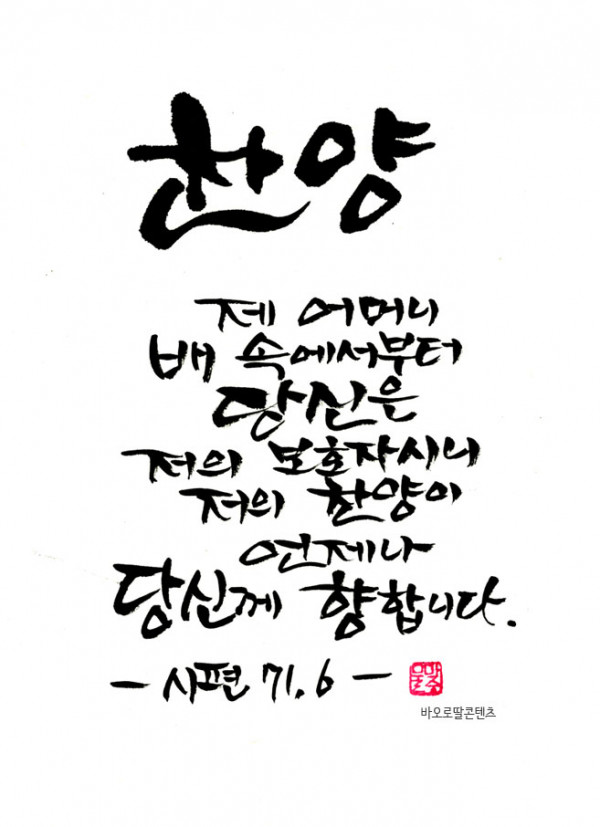 찬양
제 어머니
배 속에서부터
당신은
저의 보호자시니
저의 찬양이
언제나
당신께 향합니다.
- 시편 71,6 -
바오로딸콘텐츠